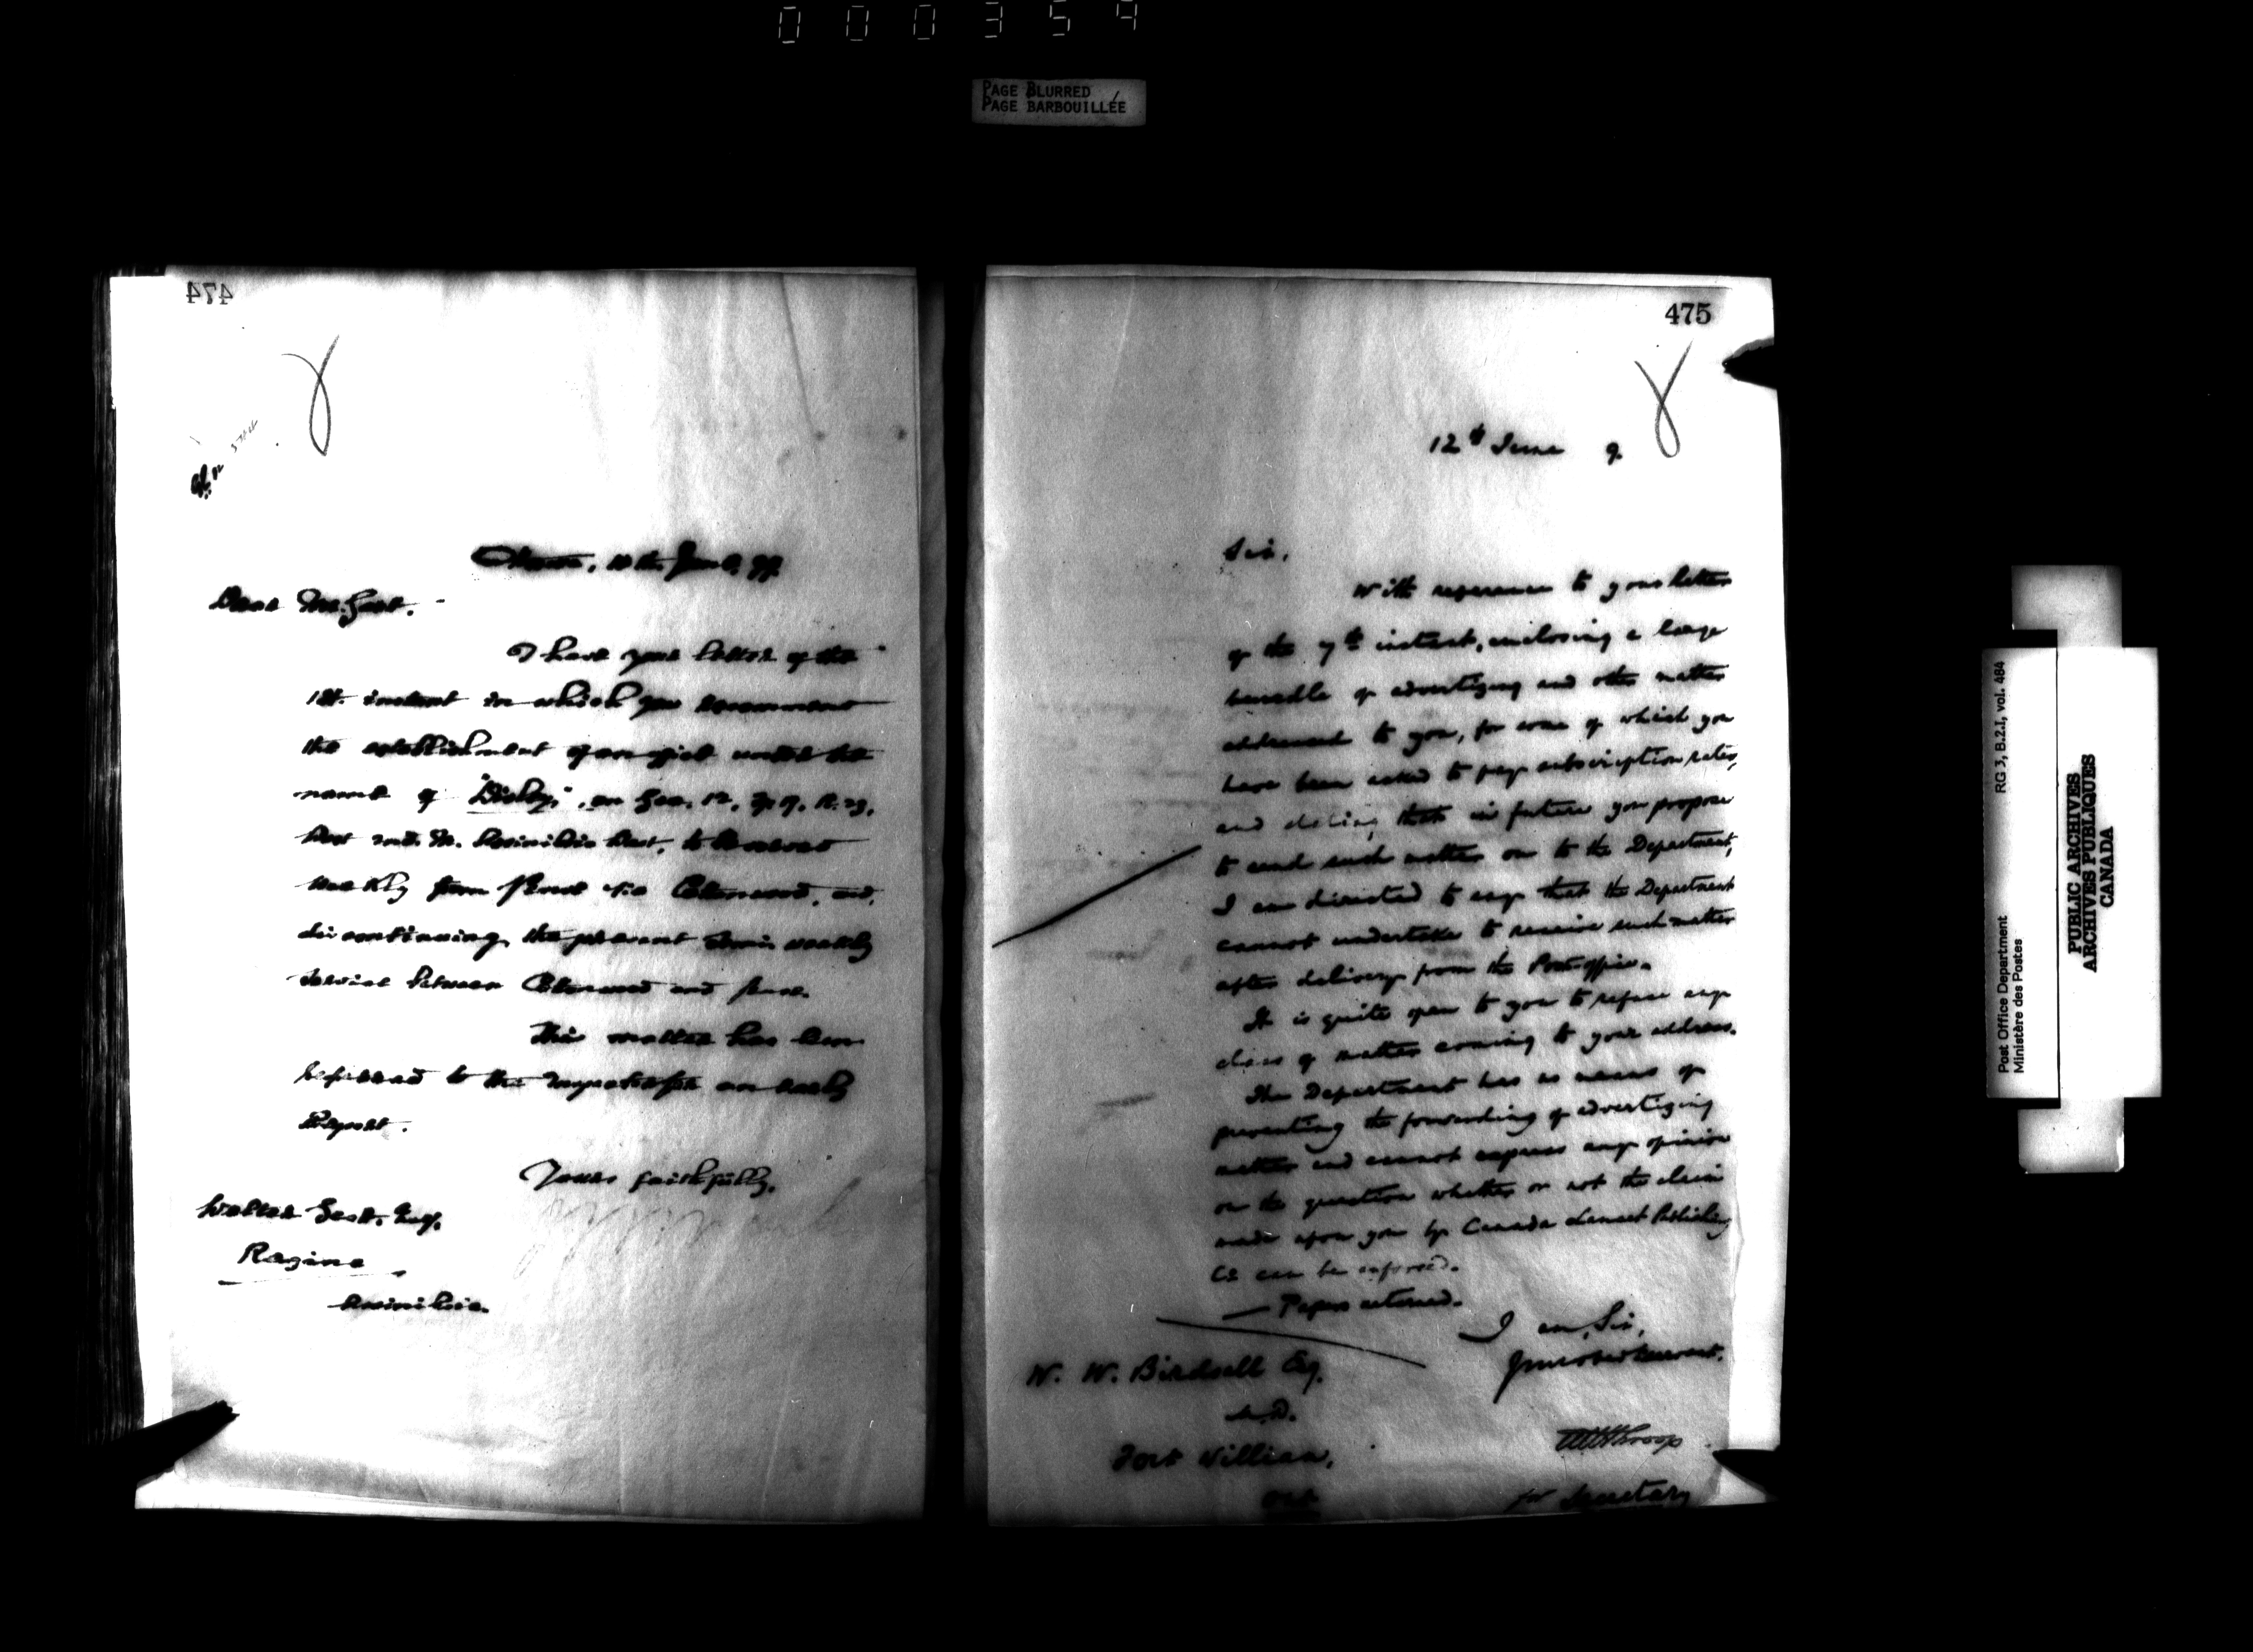 000354
PAGE BLURRED
PAGE BARBOUILLÉE
474
Ottawa, 10th June, 99.
Dear Mr.
I have your letter of the
1st. instant in which you recommend
the establishment of an office under the
name of "Disley", on Sec. 12, Tp 19, R. 23,
West 2nd. M. Assiniboia West, to be served
weekly from Pense via Cottonwood, and,
discontinuing the present semi weekly
service between Cottonwood and Pense.
This matter has been
referred to the Inspector for an early
Report.
Yours faithfully,
Walter Esq.
Regina
Assiniboia.
475
12th June 9
Sir,
With reference to your letter
of the 7th instant, enclosing a large
bundle of advertizing and other matter
addressed to you, for some of which you
have been asked to pay subscription rates,
and stating that in future you propose
to send such matter on to the Department,
I am directed to say that the Department
cannot undertake to receive such matter
after delivery from the Post office.
It is quite open to you to refuse any
class of matter coming to your address.
The Department has no means of
preventing the forwarding of advertizing
matter and cannot express any opinion
on the question whether or not the claim
made upon you by Canada Lancet Publishing
Co can be enforced.
— Papers returned.
I am, Sir,
Your obedt servant.
W. W. Birdsell Esq.
M.D.
Fort William,
Ont
for Secretary
Post Office Department
Ministère des Postes
RG 3, B.2.I, vol. 484
PUBLIC ARCHIVES
ARCHIVES PUBLIQUES
CANADA